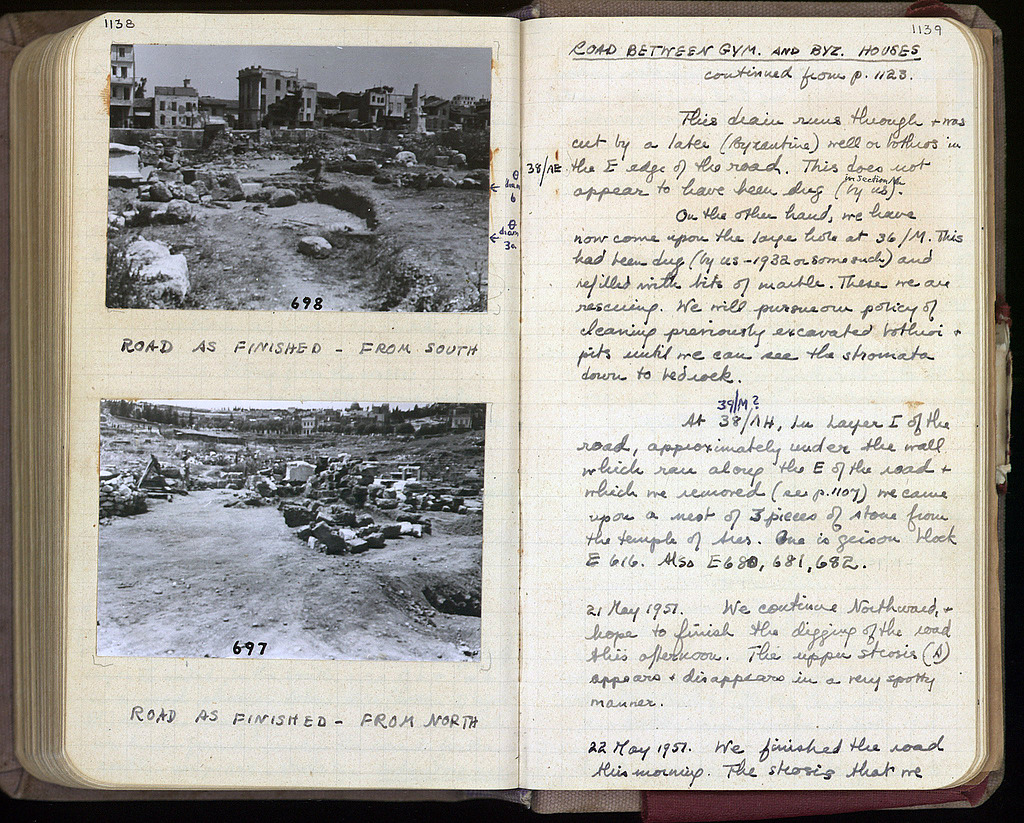 1138
698
ROAD AS FINISHED - FROM SOUTH
697
ROAD AS FINISHED - FROM NORTH
θ
drain
b
←
θ
drain
← 3a
1139
ROAD BETWEEN GYM. AND BYZ. HOUSES
continued from p. 1123.
This drain runs through + was
cut by a later (Byzantine) well or bothros in
38/ΛΕ the E edge of the road. This does not
in section ΝΝ
appear to have been dug (by us).
On the other hand, we have
now come upon the large hole at 36/M. This
had been dug (by us - 1932 or some such) and
refilled with bits of marble. These we are
rescuing. We will pursue our policy of
cleaning previously excavated bothroi +
pits until we can see the stromata
down to bedrock.
39/M?
At 38/ΛH, in Layer I of the
road, approximately under the wall
which ran along the E of the road +
which we removed (see p. 1107) we came
upon a nest of 3 pieces of stone from
the temple of Ares. One is geison block
E 616. Also E 680, 681, 682.
21 May 1951. We continue Northward, +
hope to finish the digging of the road
this afternoon. The upper strosis (A)
appears + disappears in a very spotty
manner.
22 May 1951. We finished the road
this morning. The strosis that we